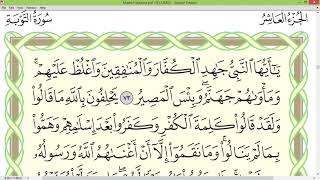 الجزء العاشر
سورة التوبة
يَـٰٓأَيُّهَا ٱلنَّبِىُّ جَـٰهِدِ ٱلْكُفَّارَ وَٱلْمُنَـٰفِقِينَ وَٱغْلُظْ عَلَيْهِمْ ۚ
وَمَأْوَىٰهُمْ جَهَنَّمُ ۖ وَبِئْسَ ٱلْمَصِيرُ ٧٣ يَحْلِفُونَ بِٱللَّهِ مَا قَالُوا۟
وَلَقَدْ قَالُوا۟ كَلِمَةَ ٱلْكُفْرِ وَكَفَرُوا۟ بَعْدَ إِسْلَـٰمِهِمْ وَهَمُّوا۟
بِمَا لَمْ يَنَالُوا۟ ۚ وَمَا نَقَمُوٓا۟ إِلَّآ أَنْ أَغْنَىٰهُمُ ٱللَّهُ وَرَسُولُهُۥ